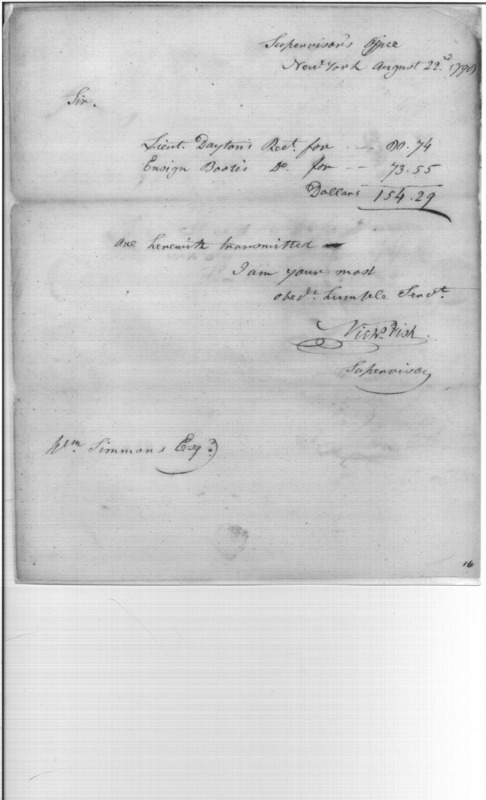 Supervisor's Office
New York August 22d. 1798
Sir.
Lieut. Dayton's Rect. for --- 80.74
Ensign Boote's Do. for --- 73.55
Dollars 154.29
are herewith transmitted
I am your most
obedt. humble Servt.
Nichs. Fish
Supervisor
Wm Simmons Esqr.
16